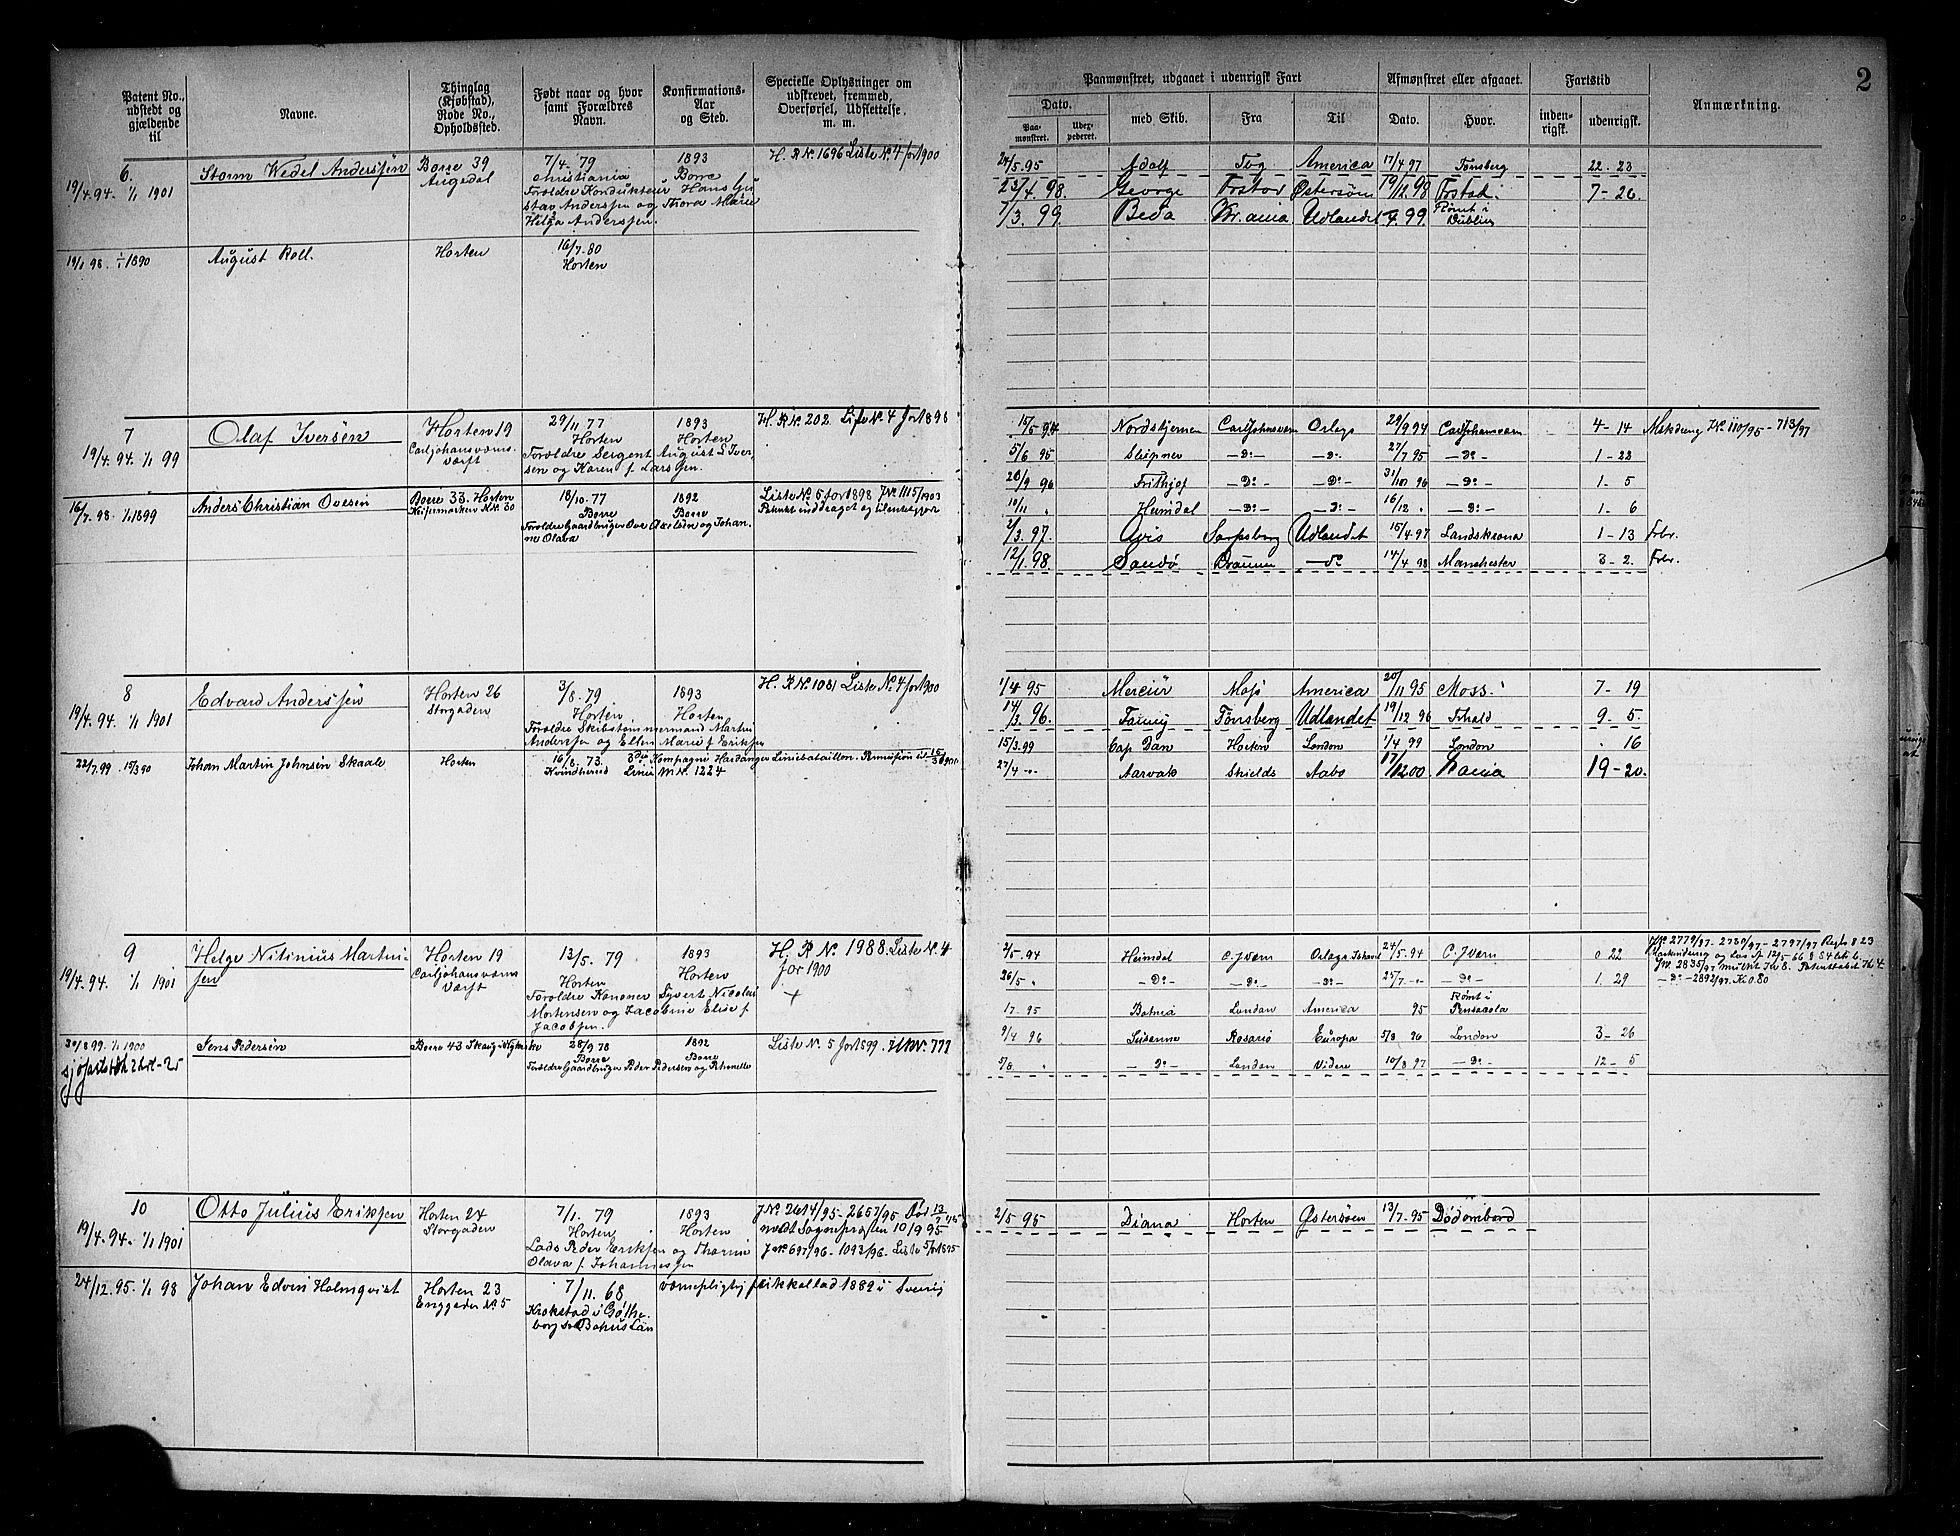 2
Patent No., udstedt og gjældende til
Navne.
Thinglag (Kjøbstad), Rode No., Opholdssted.
Født naar og hvor samt Forældres Navn.
Konfirmations-Aar og Sted.
Specielle Oplysninger om udskrevet, fremmed, Overførsel, Udslettelse m. m.
Paamønstret, udgaaet i udenrigsk Fart
Dato.
Paa-mønstret.
med Skib.
Fra
Til
Afmønstret eller afgaaet.
Dato.
Hvor.
Fartstid
inden-rigsk.
udenrigsk.
Anmærkning.
6.
19/4.94. 1/1 1901
Storm Wedel Anderssen
Borre 39
Augedal
7/4. 79
Christiania
Forældre Kondukteur Hans Gu
stav Anderssen og Thora Marie
Helga Anderssen.
1893
Borre
H. R No 1696 Liste No 4 for 1900
24/5.95 Adolf Tbg America 17/4 97 Tønsberg 22-23
23/4 98. George Frstad Østersøn 19/12 98 Frstad. 7-26.
7/3. 99. Beda Kr.ania Udlandet 99. Rømt i Dublin
19/1 98. 1/1 1890
August Roll.
Horten
16/7.80
Horten
7
19/4.94. 1/1 99
Olaf Iversen
Horten 19
Carljohansværns
værft
29/11 77
Horten
Forældre Sergent August S Iver-
sen og Karen f. Larssen.
1893
Horten
H. R No. 202 Liste No. 4 for 1898
15/5 94 Nordstjernen Carljohansværn Orlogs 29/9 94 Carljohansværn 4-14
5/6 95 Sleipner -Do- -Do- 27/7 95 -Do- 1-22
20/9 96 Frithjof -Do- -Do- 31/10 96 -Do- 1-5
10/11 " Heimdal -Do- -Do- 16/12 " -Do- 1-6
2/3. 97. Avis Sarpsborg Udlandet 15/4 97 Landskrona 1-13 Frbr.
12/1. 98. Sandø Drammen -do 14/4 98 Manchester 3-2. Frbr.
16/7. 98. 1/1 1899
Anders Christian Ovesen
Borre 33. Horten
18/10. 77
Borre
Forældre Gaardbruger Ove Axelsen og Johan-
ne Olava
1892
Borre
Liste No 5 for 1898 JNo 1115/1903
Patent inddraget og
8
19/4.94. 1/1 1901
Edvard Anderssen
Horten 26
Storgaden
3/8. 79
Horten
Forældre Skibstømmermand Martin
Anderssen og Ellen Marie f Erikssen
1893
Horten
H. R No. 1081 Liste No 4 for 1900
1/4 95 Mercur Moss America 20/11 95 Moss. 7-19
14/3. 96. Fanny Tønsberg Udlandet 19/12 96 Frhald 9-5.
15/3.99 Cap Dan Horten London 1/4 99 London " 16
27/4 -"- Aarvak Shields Aabo 17/12 00 19-20.
22/7.99. 15/3 90
Johan Martin Johnsen Skaale
Horten
16/8. 73.
Kvindherred
3die Kompagni Hardanger Liniebataillon.
Linie M No. 1224
9
19/4.94. 1/1 1901
Helge Nitinius Martin-
sen
Horten 19
Carljohansværns
Værft
13/5. 79
Horten
Forældre Kanoner Syvert Nicolai
Mortensen og Jacobine Elise f
Jacobsen.
1893
Horten
H. R No. 1988. Liste No. 4
for 1900
2/5. 94 Heimdal C.J.værn Orlogs 24/5. 94 C.J.værn 0 22
26/5 " -Do- -Do- -Do- 25/7 -"- -Do- 1. 29
17. 95 Botnia London America 95 Rømt i Pensacola
9/4 96 Susanne Rosario Europa 5/8 96 London 3-26
5/8 " -Do- London Videre 10/8 97 -Do- 12-5
JNo 2779/97 - 2780/97 - 2797/97
-Do- 2892/97 Kr 0.80
30/8 99. 1/1 1900
Jens Pedersen
28/9 78
Borre
Forældre Gaardbruger Peder Pedersen og Petronelle
1892
Borre
Liste No. 5 for 1899.
10
19/4.94. 1/1 1901
Otto Julius Erikssen
Horten 24
Storgaden
7/1. 79
Horten
Lods Peder Erikssen og Thorine
Olava f Johannessen
1893
Horten
JNo 2614/95 - 2657/95 Død 13/7 95
JNo 697/96 - 1093/96. Liste 5 for 1895
2/5 95 Diana Horten Østersøen 13/7. 95 Død ombord
24/12. 95. 1/1 98
Johan Edvin Holmqvist
Horten 23
Enggaden No 5
7/11. 68
Krokstad i Gøthe-
borg og Bohus Län
værnepligtig
1889 i Sverig